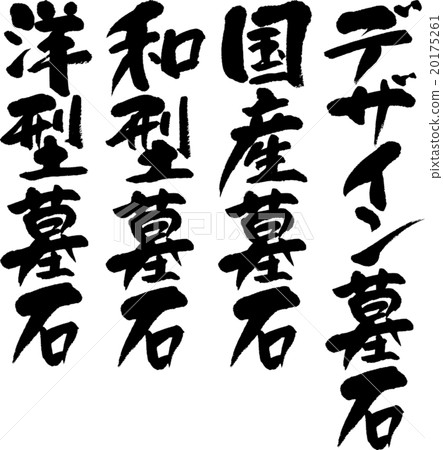 デザイン墓石
国産墓石
和型墓石
洋型墓石
PIXTA
20175261